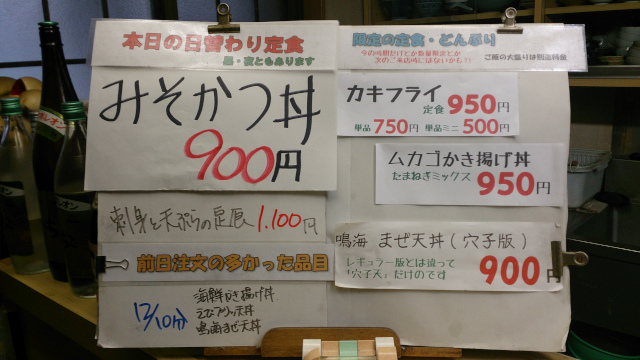 本日の日替わり定食
昼・夜ともあります
みそかつ丼
900円
刺身と天ぷらの定食 1.100円
前日注文の多かった品目
12/10分
海鮮かき揚げ丼
エビブリッ天丼
鳴海まぜ天丼
限定の定食・どんぶり
今の時期だけとか数量限定とか
次のご来店時にはないかも?!
ご飯の大盛りは別途料金
カキフライ
定食 950円
単品 750円 単品ミニ 500円
ムカゴかき揚げ丼
たまねぎミックス 950円
鳴海 まぜ天丼(穴子版)
レギュラー版とは違って
「穴子天」だけのです
900円